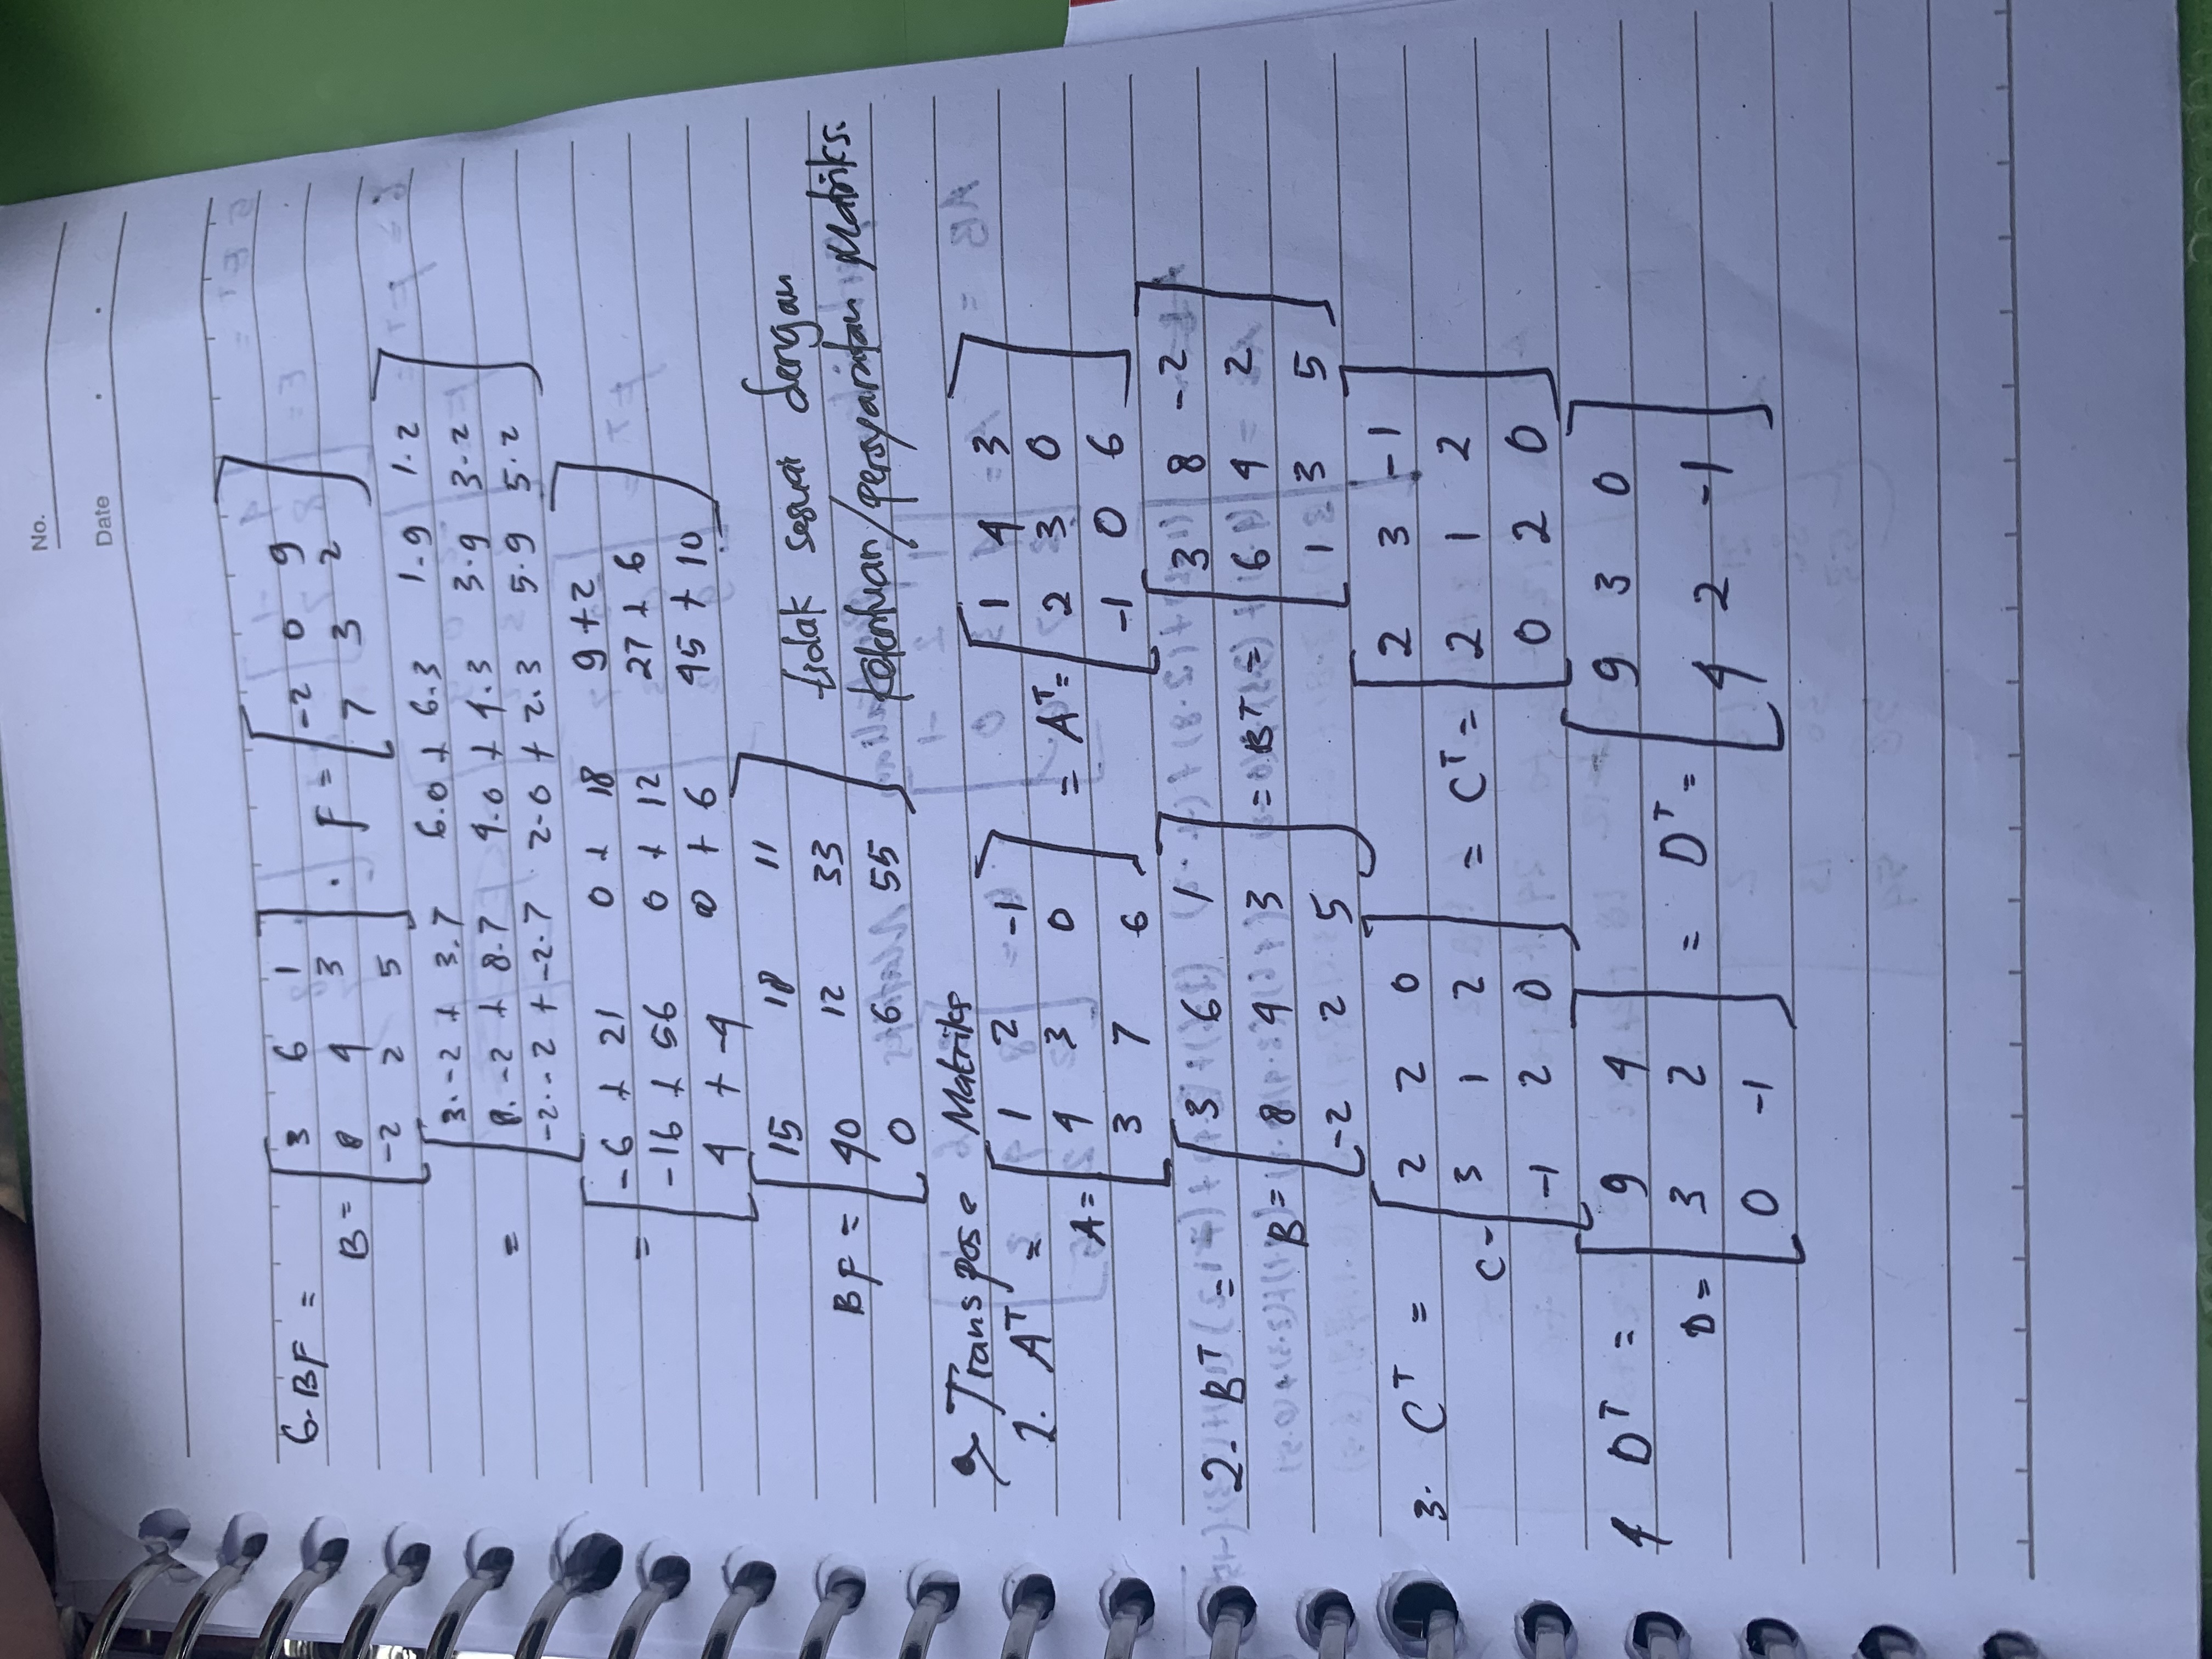 No.
Date
6. BF =
B = [3 6 1
8 4 3
-2 2 5] . F = [-2 0 9
7 3 2]
= [3.-2 + 3.7 6.0 + 6.3 1.9 1.2
8.-2 + 8.7 4.0 + 4.3 3.9 3.2
-2.-2 + -2.7 2.0 + 2.3 5.9 5.2]
= [-6 + 21 0 + 18 9 + 2
-16 + 56 0 + 12 27 + 6
4 + -4 0 + 6 45 + 10]
BF = [15 18 11
40 12 33
0 6 55]
tidak sesuai dengan
ketentuan/persyaratan Matriks.
Transpose Matriks
1. Aᵀ =
A = [1 2 -1
4 3 0
3 7 6] = Aᵀ = [1 4 3
2 3 0
-1 0 6]
2. Bᵀ =
B = [3 6 1
8 4 3
-2 2 5] = Bᵀ = [3 8 -2
6 4 2
1 3 5]
3. Cᵀ =
C = [2 2 0
3 1 2
-1 2 0] = Cᵀ = [2 3 -1
2 1 2
0 2 0]
4 Dᵀ =
D = [9 4
3 2
0 -1] = Dᵀ = [9 3 0
4 2 -1]